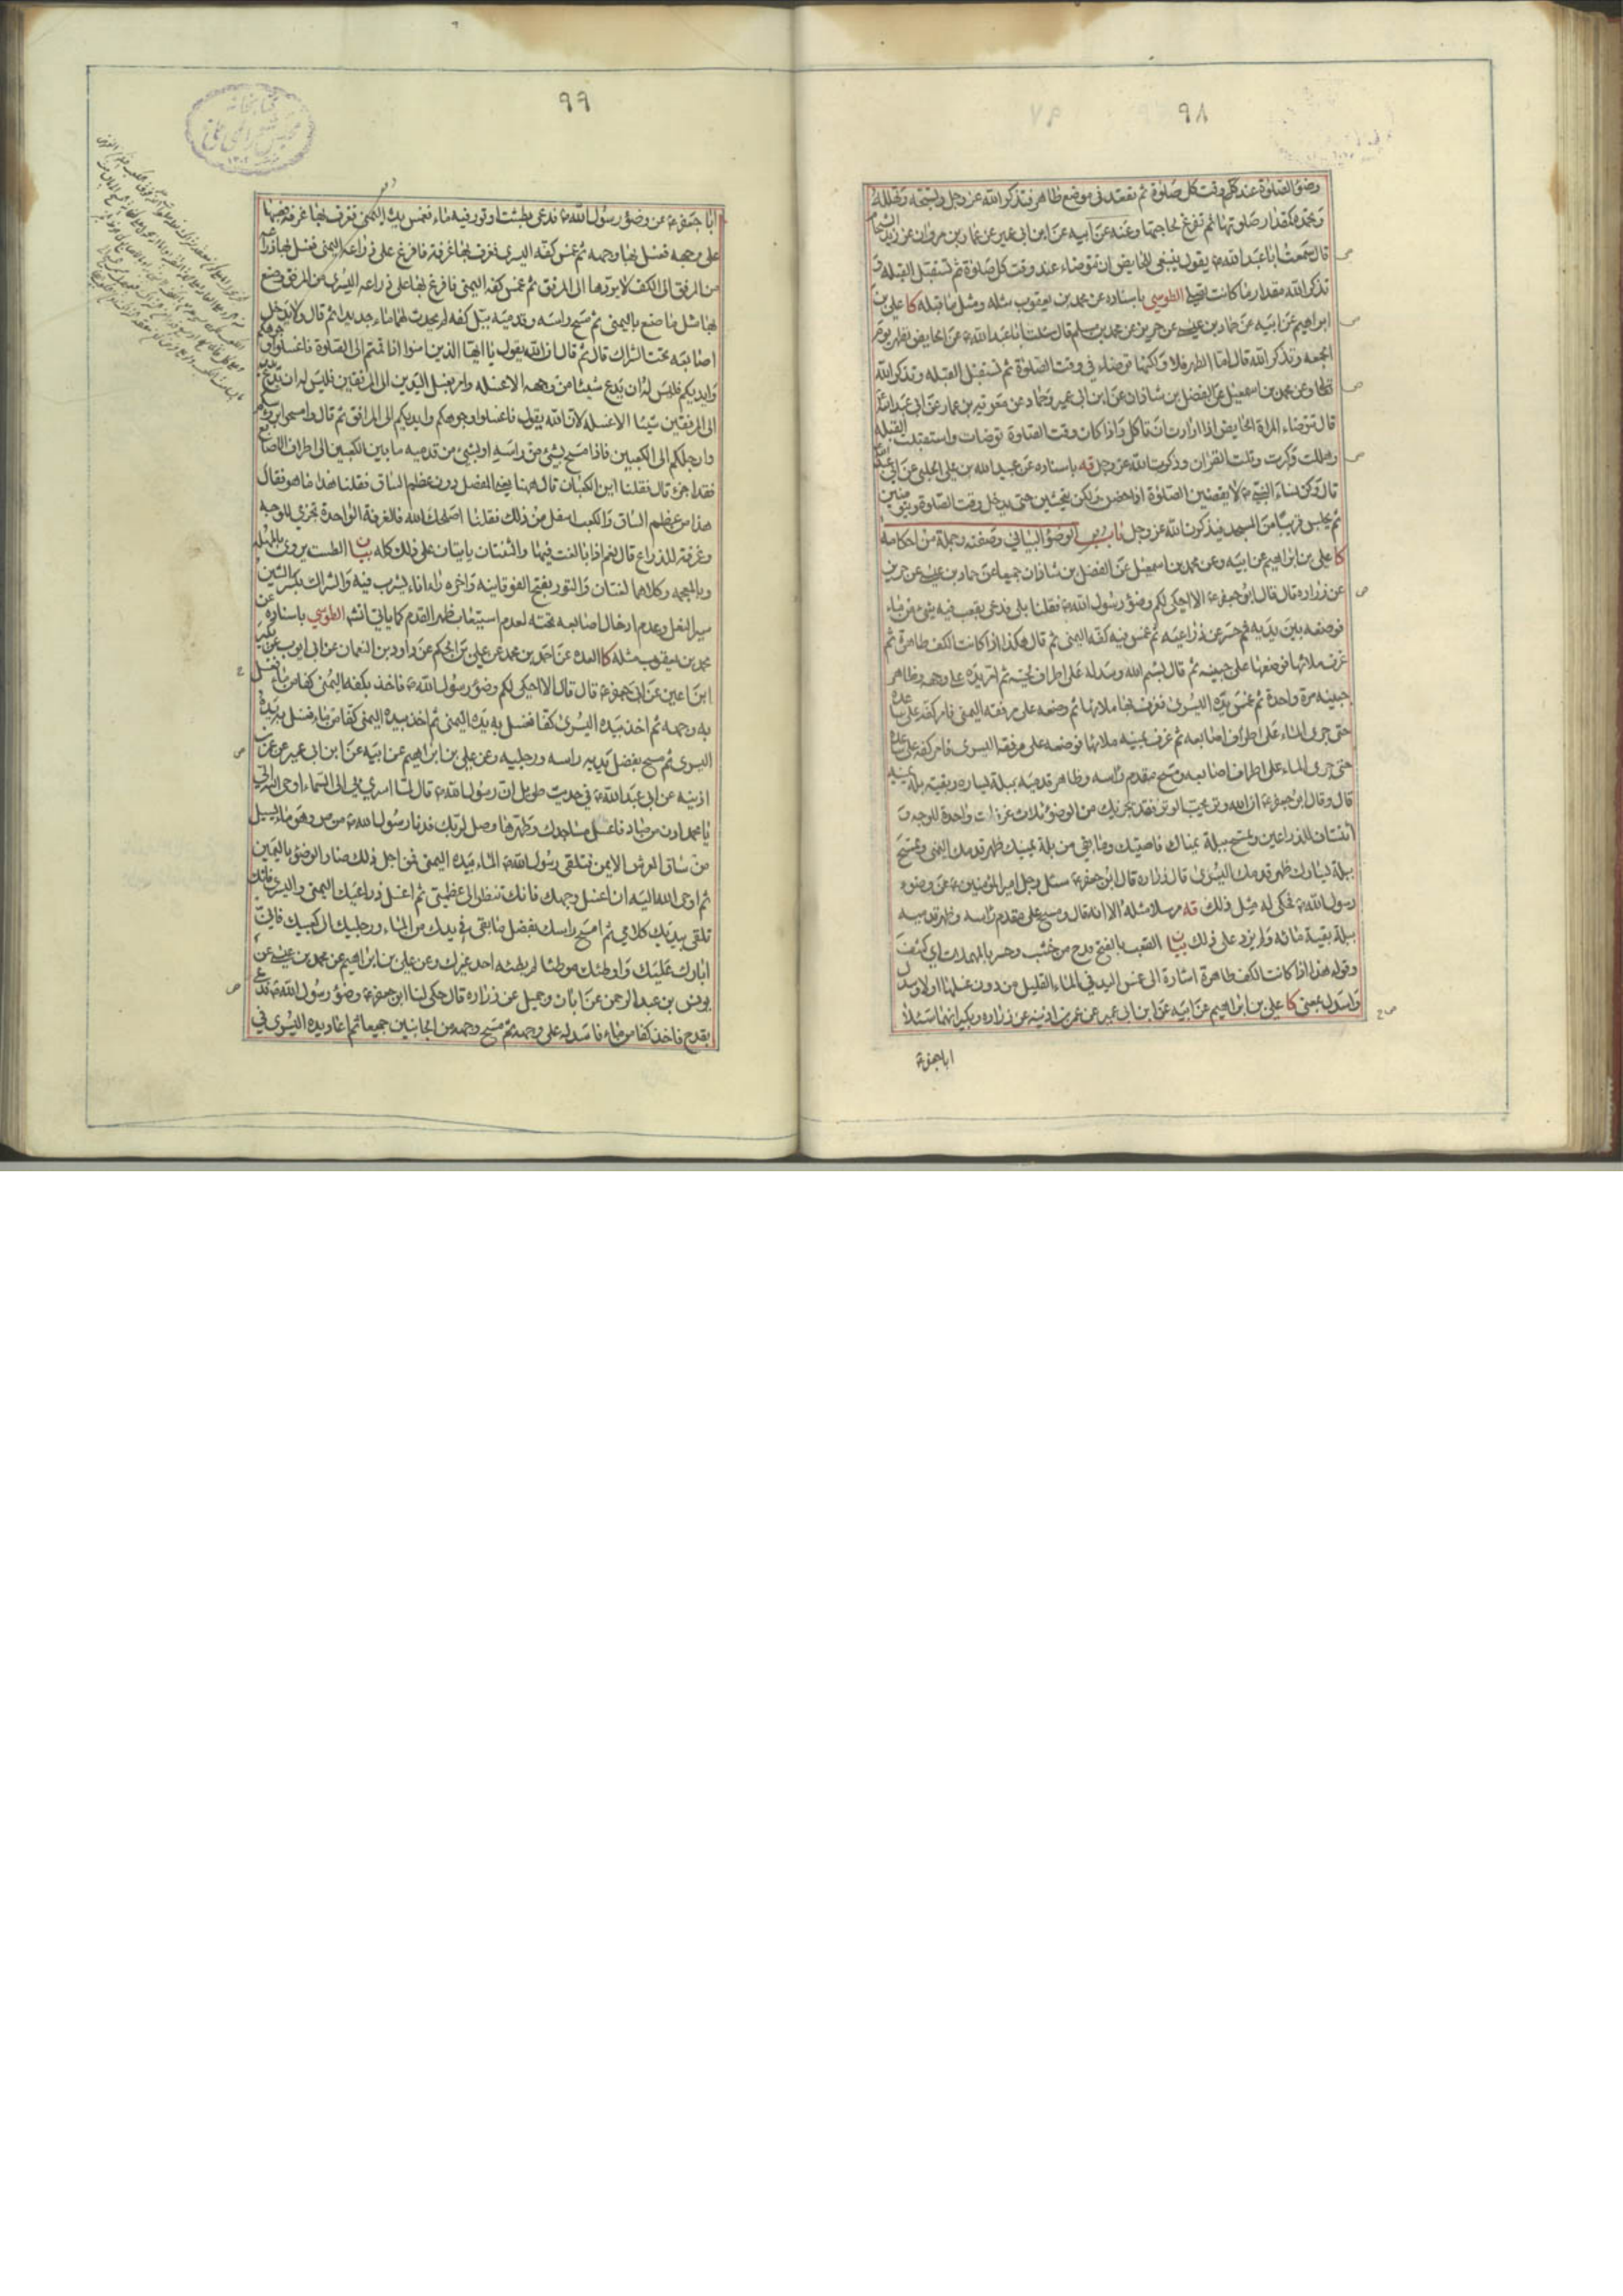 ٩٨
وضوء الصلوة عند كل وقت كل صلوة ثم تقعد في موضع طاهر فتذكر الله عز وجل وتسبحه وتهلله
وتحمده كمقدار صلوتها ثم تفرغ لحاجتها وعنه عن ابيه عن ابن ابي عمير عن عمار بن مروان عن زيد الشحام
قال سمعت ابا عبد الله ع يقول ينبغي للحايض ان تتوضاء عند وقت كل صلوة ثم تستقبل القبلة و
تذكر الله مقدار ما كانت تصلي الطوسي باسناده عن محمد بن يعقوب مثله ومثل ما قبله كا علي بن
ابراهيم عن ابيه عن حماد بن عيسى عن حريز عن محمد بن مسلم قال سئلت ابا عبد الله ع عن الحايض تطهر يوم
الجمعه وتذكر الله قال اما الطهر فلا ولكنها توضاء في وقت الصلوة ثم تستقبل القبله وتذكر الله
تعالى وعن محمد بن اسمعيل عن الفضل بن شاذان عن ابن ابي عمير وحماد عن معوية بن عمار عن ابي عبد الله
قال تتوضاء المراة الحايض اذا ارادت ان تاكل واذا كان وقت الصلوة توضات واستقبلت القبله
وهللت وكبرت وتلت القران وذكرت الله عز وجل قه باسناده عن عبيد الله بن علي الحلبي عن ابي عبد الله
قال وكن نساء النبي ص لا يقضين الصلوة اذا حضن ولكن يتحشين حين يدخل وقت الصلوة ويتوضين
ثم يجلسن قريبا من المسجد فيذكرن الله عز وجل باب الوضوء البياني وصفته وجملة من احكامه
كا علي بن ابراهيم عن ابيه وعن محمد بن اسمعيل عن الفضل بن شاذان جميعا عن حماد بن عيسى عن حريز
عن زراره قال قال ابو جعفر ع الا احكي لكم وضوء رسول الله ص فقلنا بلى فدعى بقعب فيه شئ من ماء
فوضعه بين يديه ثم حسر عن ذراعيه ثم غمس فيه كفه اليمنى ثم قال هكذا اذا كانت الكف طاهرة ثم
غرف ملاءها فوضعها على جبينه ثم قال بسم الله وسدله على اطراف لحيته ثم امر يده على وجهه وظاهر
جبينه مرة واحدة ثم غمس يده اليسرى فغرف بها ملاءها ثم وضعه على مرفقه اليمنى فامر كفه على ساعده
حتى جرى الماء على اطراف اصابعه ثم غرف بيمينه ملاءها فوضعه على مرفقه اليسرى فامر كفه على ساعده
حتى جرى الماء على اطراف اصابعه ومسح مقدم راسه وظاهر قدميه ببلة يساره وبقية بلة يمينه
قال وقال ابو جعفر ع ان الله وتر يحب الوتر فقد يجزيك من الوضوء ثلاث غرفات واحدة للوجه و
اثنتان للذراعين وتمسح ببلة يمناك ناصيتك وما بقي من بلة يمينك ظهر قدمك اليمنى وتمسح
ببلة يسارك ظهر قدمك اليسرى قال زراره قال ابو جعفر ع سئل رجل امير المؤمنين ع عن وضوء
رسول الله ص فحكى له مثل ذلك قه مرسلا مثله الا انه قال ومسح على مقدم راسه وظهر قدميه
ببلة بقية مائه ولم يزد على ذلك بيان القعب بالفتح قدح من خشب وحسر بالمهملات اي كشف
وقوله هذا اذا كانت الكف طاهرة اشارة الى غمس اليد في الماء القليل من دون غسلها اولا وسدل
واسدل بمعنى كا علي بن ابراهيم عن ابيه عن ابن ابي عمير عن عمر بن اذينه عن زراره وبكير انهما سئلا
ابا جعفر ع
٩٩
ابا جعفر ع عن وضوء رسول الله ص فدعى بطشت او تور فيه ماء فغمس يده اليمنى فغرف بها غرفة فصبها
على وجهه فغسل بها وجهه ثم غمس كفه اليسرى فغرف بها غرفة فافرغ على ذراعه اليمنى فغسل بها ذراعه
من المرفق الى الكف لا يردها الى المرفق ثم غمس كفه اليمنى فافرغ بها على ذراعه اليسرى من المرفق وصنع
بها مثل ما صنع باليمنى ثم مسح راسه وقدميه ببلل كفه لم يحدث لهما ماء جديدا ثم قال ولا يدخل
اصابعه تحت الشراك قال ثم قال ان الله يقول يا ايها الذين امنوا اذا قمتم الى الصلوة فاغسلوا وجوهكم
وايديكم فليس له ان يدع شيئا من وجهه الا غسله وامر بغسل اليدين الى المرفقين فليس له ان يدع من يديه
الى المرفقين شيئا الا غسله لان الله يقول فاغسلوا وجوهكم وايديكم الى المرافق ثم قال وامسحوا برؤسكم
وارجلكم الى الكعبين فاذا مسح بشئ من راسه او بشئ من قدميه ما بين الكعبين الى اطراف الاصابع
فقد اجزاه قال فقلنا اين الكعبان قال ههنا يعني المفصل دون عظم الساق فقلنا هذا ما هو فقال
هذا من عظم الساق والكعب اسفل من ذلك فقلنا اصلحك الله فالغرفة الواحدة تجزي للوجه
وغرفة للذراع قال نعم اذا بالغت فيها والثنتان ياتيان على ذلك كله بيان الطست يروى بالمهمله
وبالمعجمه وكلاهما لغتان والتور بفتح الفوقانيه واخره راء اناء يشرب فيه والشراك بكسر الشين
سير النعل وعدم ادخال اصابعه تحته لعدم استيعاب ظهر القدم كما ياتي انشه الطوسي باسناده عن
محمد بن يعقوب مثله كا العده عن احمد بن محمد عن علي بن الحكم عن داود بن النعمان عن ابي ايوب عن بكير
ابن اعين عن ابي جعفر ع قال قال الا احكي لكم وضوء رسول الله ص فاخذ بكفه اليمنى كفا من ماء فغسل
به وجهه ثم اخذ بيده اليسرى كفا فغسل به يده اليمنى ثم اخذ بيده اليمنى كفا من ماء فغسل به يده
اليسرى ثم مسح بفضل يديه راسه ورجليه وعن علي بن ابراهيم عن ابيه عن ابن ابي عمير عن عمر بن
اذينه عن ابي عبد الله ع في حديث طويل ان رسول الله ص قال لما اسري بي الى السماء اوحى الله الي
يا محمد ادن من صاد فاغسل مساجدك وطهرها وصل لربك فدنا رسول الله ص من ص وهو ماء يسيل
من ساق العرش الايمن فتلقى رسول الله ص الماء بيده اليمنى فمن اجل ذلك صار الوضوء باليمين
ثم اوحى الله اليه ان اغسل وجهك فانك تنظر الى عظمتي ثم اغسل ذراعيك اليمنى واليسرى فانك
تلقى بيديك كلامي ثم امسح راسك بفضل ما بقي في يدك من الماء ورجليك الى كعبيك فاني
ابارك عليك واوطئك موطئا لم يطئه احد غيرك وعن علي بن ابراهيم عن محمد بن عيسى عن
يونس بن عبد الرحمن عن ابان وجميل عن زراره قال حكى لنا ابو جعفر ع وضوء رسول الله ص فدعى
بقدح فاخذ كفا من ماء فاسدله على وجهه ثم مسح وجهه من الجانبين جميعا ثم اعاد يده اليسرى في